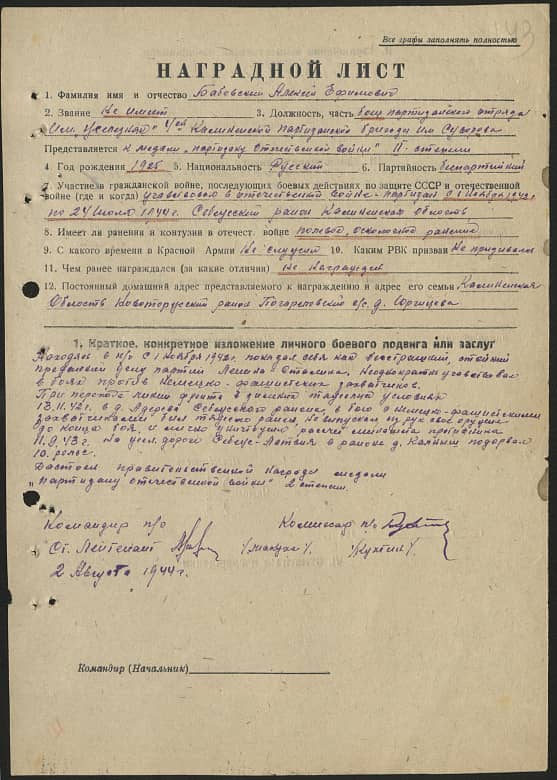 143
Все графы заполнять полностью
НАГРАДНОЙ ЛИСТ
1. Фамилия имя и отчество Бабовский Алексей Ефимович
2. Звание Не имеет 3. Должность, часть боец партизанского отряда
1ой Калининской партизанской бригады им
Представляется к медали „партизану Отечественной войны" II степени
4 Год рождения 1925 5. Национальность Русский 6. Партийность беспартийный
7. Участие в гражданской войне, последующих боевых действиях по защите СССР и отечественной
войне (где и когда) участвовал в отечественной войне партизан с 1 ноября 1942г.
по 24 июля 1944г. Себежский район Калининская область
8. Имеет ли ранения и контузии в отечест. войне осколочное ранение
9. С какого времени в Красной Армии Не служил 10. Каким РВК призван Не призывался
11. Чем ранее награждался (за какие отличия) Не награжден
12. Постоянный домашний адрес представляемого к награждению и адрес его семьи Калининская
Область район с/с. д.
1. Краткое, конкретное изложение личного боевого подвига или заслуг
Находясь в п/о с 1 ноября 1942г. показал себя как бесстрашный, стойкий
преданный делу партии Ленина Сталина. Неоднократно участвовал
в боях против Немецко-фашистских захватчиков.
При переходе линии фронта в зимних условиях
13.11.42г. в д. Себежского района, в бою с немецко-фашистскими
захватчиками был ранен. Не выпускал из рук своё оружие
до конца боя, и лично уничтожил расчет миномета противника
11.9.43г. На жел. дороге Себеж-Латвия в районе д. подорвал
10 рельс.
Достоин правительственной награды медали
„Партизану отечественной войны" 2 степени.
Командир п/о Комиссар п/о
Ст. Лейтенант
2 Августа 1944г.
Командир (Начальник)